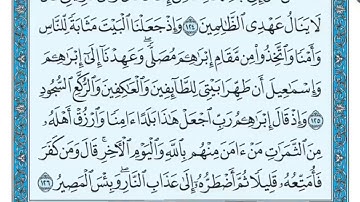 لَا يَنَالُ عَهْدِى ٱلظَّٰلِمِينَ ١٢٤ وَإِذْ جَعَلْنَا ٱلْبَيْتَ مَثَابَةً لِّلنَّاسِ
وَأَمْنًا وَٱتَّخِذُوا۟ مِن مَّقَامِ إِبْرَٰهِـۧمَ مُصَلًّى ۖ وَعَهِدْنَآ إِلَىٰٓ إِبْرَٰهِـۧمَ
وَإِسْمَٰعِيلَ أَن طَهِّرَا بَيْتِىَ لِلطَّآئِفِينَ وَٱلْعَٰكِفِينَ وَٱلرُّكَّعِ ٱلسُّجُودِ
١٢٥ وَإِذْ قَالَ إِبْرَٰهِـۧمُ رَبِّ ٱجْعَلْ هَٰذَا بَلَدًا ءَامِنًا وَٱرْزُقْ أَهْلَهُۥ
مِنَ ٱلثَّمَرَٰتِ مَنْ ءَامَنَ مِنْهُم بِٱللَّهِ وَٱلْيَوْمِ ٱلْءَاخِرِ ۖ قَالَ وَمَن كَفَرَ
فَأُمَتِّعُهُۥ قَلِيلًا ثُمَّ أَضْطَرُّهُۥٓ إِلَىٰ عَذَابِ ٱلنَّارِ ۖ وَبِئْسَ ٱلْمَصِيرُ ١٢٦